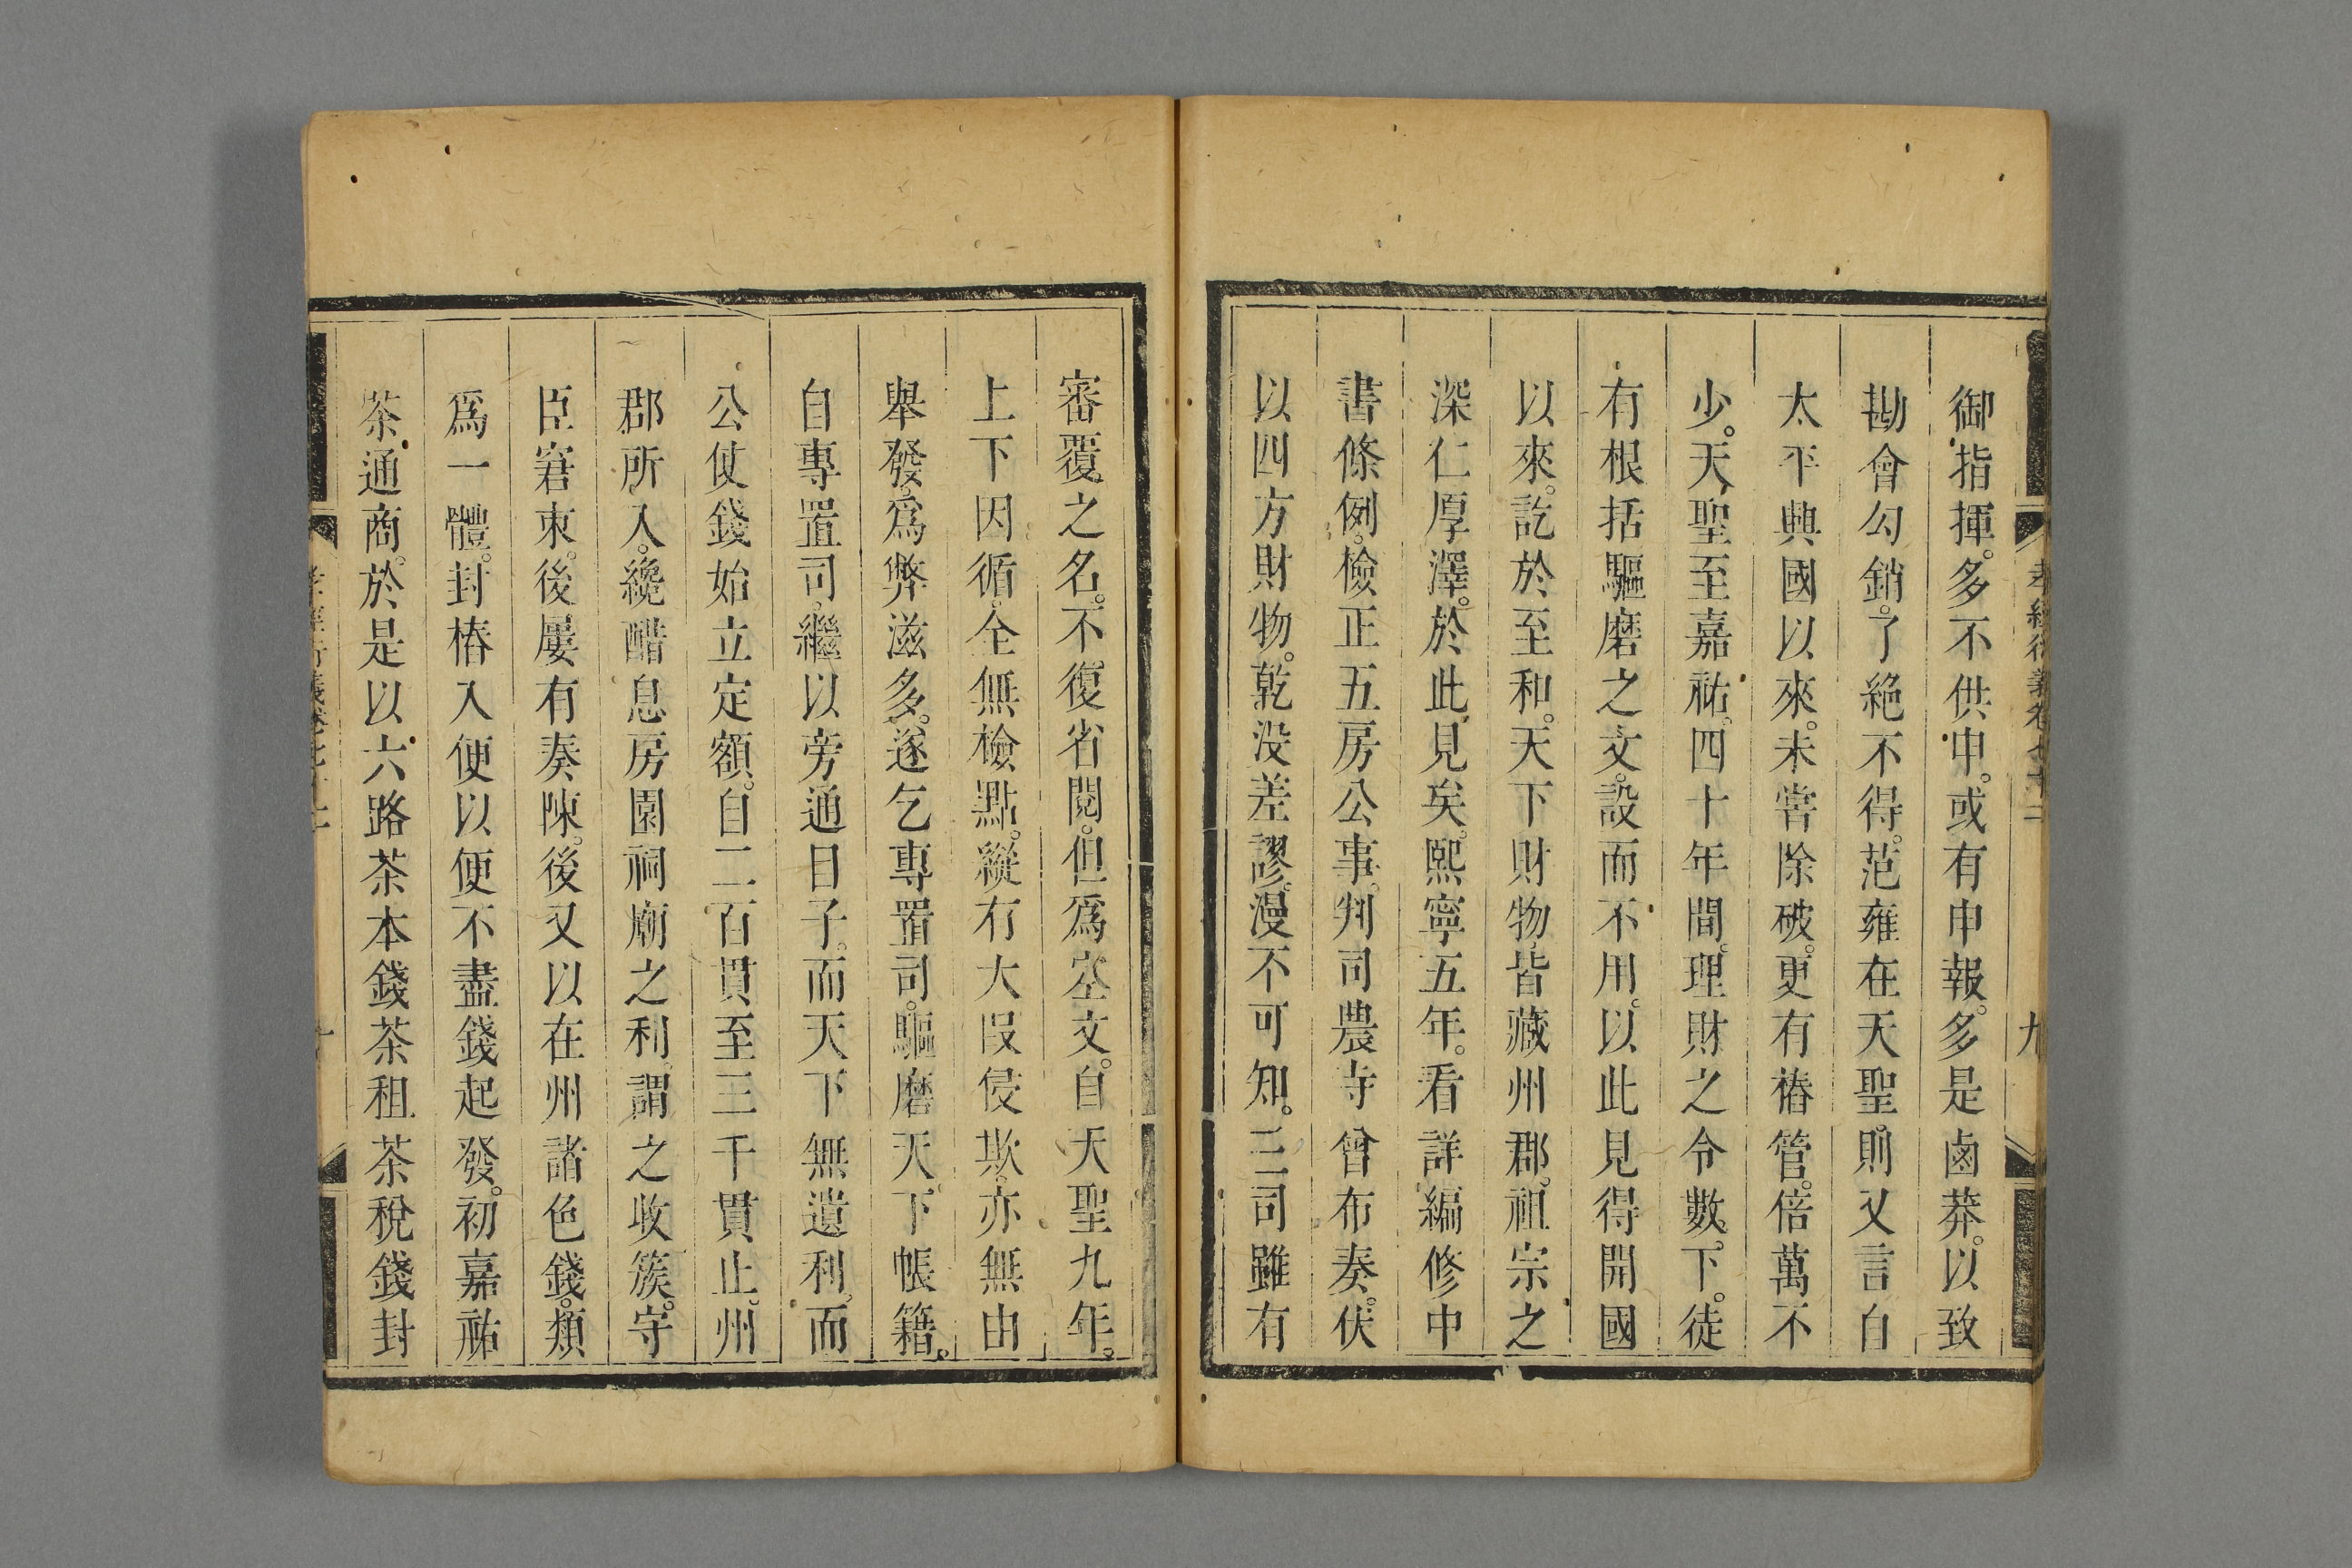 御指揮。多不供申。或有申報。多是鹵莽。以致
勘會勾銷。了絶不得。范雍在天聖。則又言自
太平興國以來。未嘗除破。更有樁管。倍萬不
少。天聖至嘉祐。四十年間。理財之令數下。徒
有根括驅磨之文。設而不用。以此見得開國
以來。訖於至和。天下財物。皆藏州郡。祖宗之
深仁厚澤。於此見矣。熙寧五年。看詳編修中
書條例。檢正五房公事。判司農寺曾布奏。伏
以四方財物。乾没差謬。漫不可知。三司雖有
審覆之名。不復省閱。但爲空文。自天聖九年。
上下因循。全無檢點。縱有大段侵欺。亦無由
舉發。爲弊滋多。遂乞專置司。驅磨天下帳籍。
自專置司。繼以旁通日子。而天下無遺利。而
公使錢始立定額。自二百貫至三千貫止。州
郡所入。纔醋息房園祠廟之利。謂之收簇。守
臣窘束。後屢有奏陳。後又以在州諸色錢。類
爲一體。封樁入便以便不盡錢起發。初嘉祐
茶通商。於是以六路茶本錢茶租茶稅錢封
九